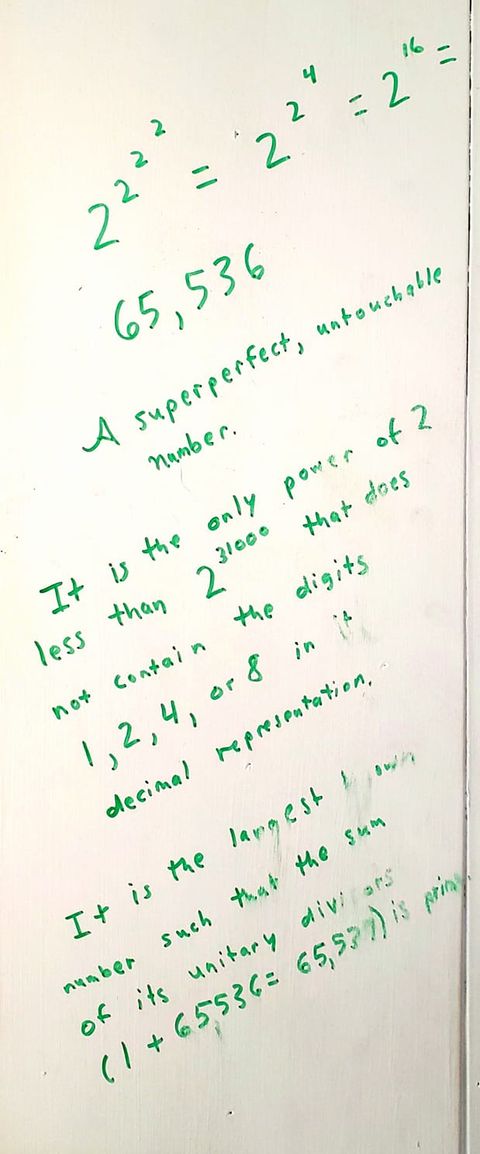 2^2^2^2 = 2^2^4 = 2^16 =
65,536
A superperfect, untouchable
number.
It is the only power of 2
less than 2^31000 that does
not contain the digits
1, 2, 4, or 8 in it
decimal representation.
It is the largest known
number such that the sum
of its unitary divisors
(1 + 65536 = 65,537) is prime